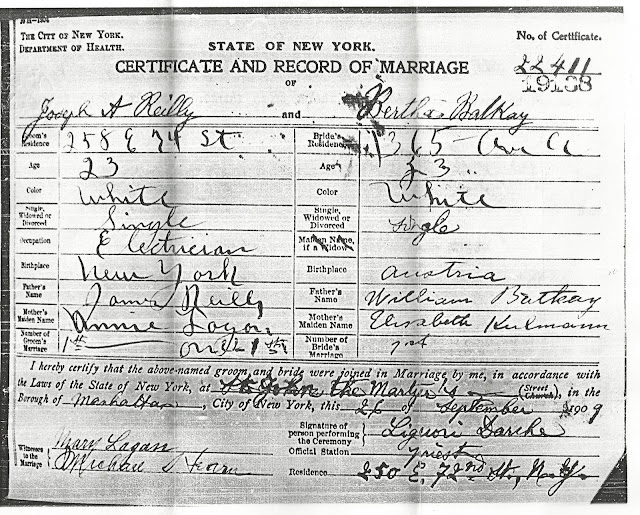 THE CITY OF NEW YORK.
DEPARTMENT OF HEALTH.
STATE OF NEW YORK.
No. of Certificate.
CERTIFICATE AND RECORD OF MARRIAGE
22411
19138
OF
Joseph A Reilly and Bertha Balkay
Groom's Residence 258 E 74 St Bride's Residence 1365 Ave A
Age 23 Age 23
Color White Color White
Single, Widowed or Divorced Single Single, Widowed or Divorced Single
Occupation Electrician Maiden Name, if a Widow
Birthplace New York Birthplace Austria
Father's Name James Reilly Father's Name William Batkay
Mother's Maiden Name Annie Mother's Maiden Name Elisabeth
Number of Groom's Marriage 1st Number of Bride's Marriage
I hereby certify that the above-named groom and bride were joined in Marriage by me, in accordance with
the Laws of the State of New York, at St John the Martyr's (Street Church), in the
Borough of Manhattan, City of New York, this 26 of September 1909
Signature of person performing the Ceremony Liguori
Witnesses to the Marriage Mary Lagan
Official Station priest
Michael
Residence 250 E. 72nd St, N.Y.